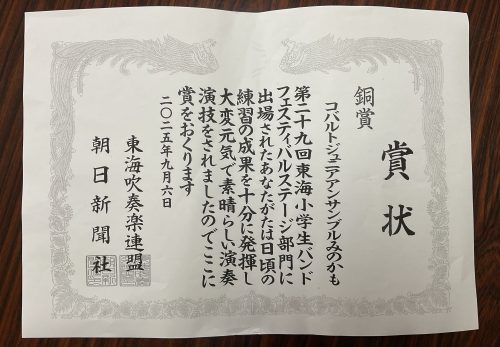 賞状
銅賞
コバルトジュニアアンサンブルみのかも
第二十九回東海小学生バンド
フェスティバルステージ部門に
出場されたあなたがたは日頃の
練習の成果を十分に発揮し
大変元気で素晴らしい演奏
演技をされましたのでここに
賞をおくります
二〇二五年九月六日
東海吹奏楽連盟
朝日新聞社